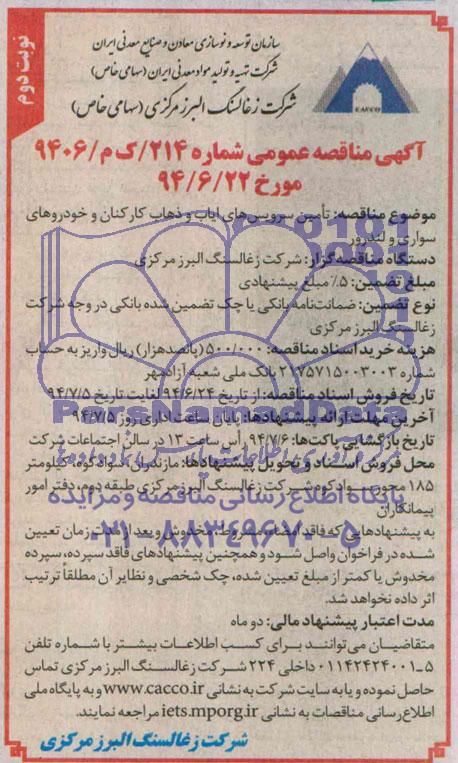 نوبت دوم
سازمان توسعه و نوسازی معادن و صنایع معدنی ایران
شرکت تهیه و تولید مواد معدنی ایران (سهامی خاص)
شرکت زغالسنگ البرز مرکزی (سهامی خاص)
CACCO
آگهی مناقصه عمومی شماره ۲۱۴/ک م/۹۴۰۶
مورخ ۹۴/۶/۲۲
موضوع مناقصه: تأمین سرویس‌های ایاب و ذهاب کارکنان و خودروهای
سواری و لندرور
دستگاه مناقصه‌گزار: شرکت زغالسنگ البرز مرکزی
مبلغ تضمین: ۵٪ مبلغ پیشنهادی
نوع تضمین: ضمانت‌نامه بانکی یا چک تضمین شده بانکی در وجه شرکت
زغالسنگ البرز مرکزی
هزینه خرید اسناد مناقصه: ۵۰۰/۰۰۰ (پانصد هزار) ریال واریز به حساب
شماره ۲۱۷۵۷۱۵۰۰۳۰۰۳ بانک ملی شعبه آزادمهر
تاریخ فروش اسناد مناقصه: از تاریخ ۹۴/۶/۲۴ لغایت تاریخ ۹۴/۷/۵
آخرین مهلت ارائه پیشنهادها: پایان ساعت اداری روز ۹۴/۷/۵
تاریخ بازگشایی پاکت‌ها: ۹۴/۷/۶ رأس ساعت ۱۳ در سالن اجتماعات شرکت
محل فروش اسناد و تحویل پیشنهادها: مازندران، سوادکوه، کیلومتر
۱۸۵ محور سوادکوه شرکت زغالسنگ البرز مرکزی طبقه دوم، دفتر امور
پیمانکاران
به پیشنهادهایی که فاقد امضاء، مشروط، مخدوش و بعد از مدت زمان تعیین
شده در فراخوان واصل شود و همچنین پیشنهادهای فاقد سپرده، سپرده
مخدوش یا کمتر از مبلغ تعیین شده، چک شخصی و نظایر آن مطلقاً ترتیب
اثر داده نخواهد شد.
مدت اعتبار پیشنهاد مالی: دو ماه
متقاضیان می‌توانند برای کسب اطلاعات بیشتر با شماره تلفن
۵-۰۱۱۴۲۴۲۴۰۰۱ داخلی ۲۲۴ شرکت زغالسنگ البرز مرکزی تماس
حاصل نموده و یا به سایت شرکت به نشانی www.cacco.ir و به پایگاه ملی
اطلاع‌رسانی مناقصات به نشانی iets.mporg.ir مراجعه نمایند.
شرکت زغالسنگ البرز مرکزی
ParsNamadData
پایگاه اطلاع رسانی مناقصه و مزایده
۰۲۱-۸۸۳۴۹۶۷۰-۵